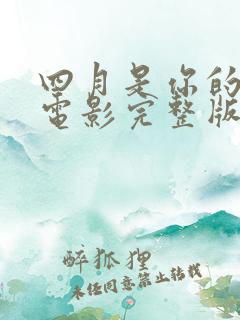 四月是你的
电影完整版
醉狐狸
未经同意禁止转载